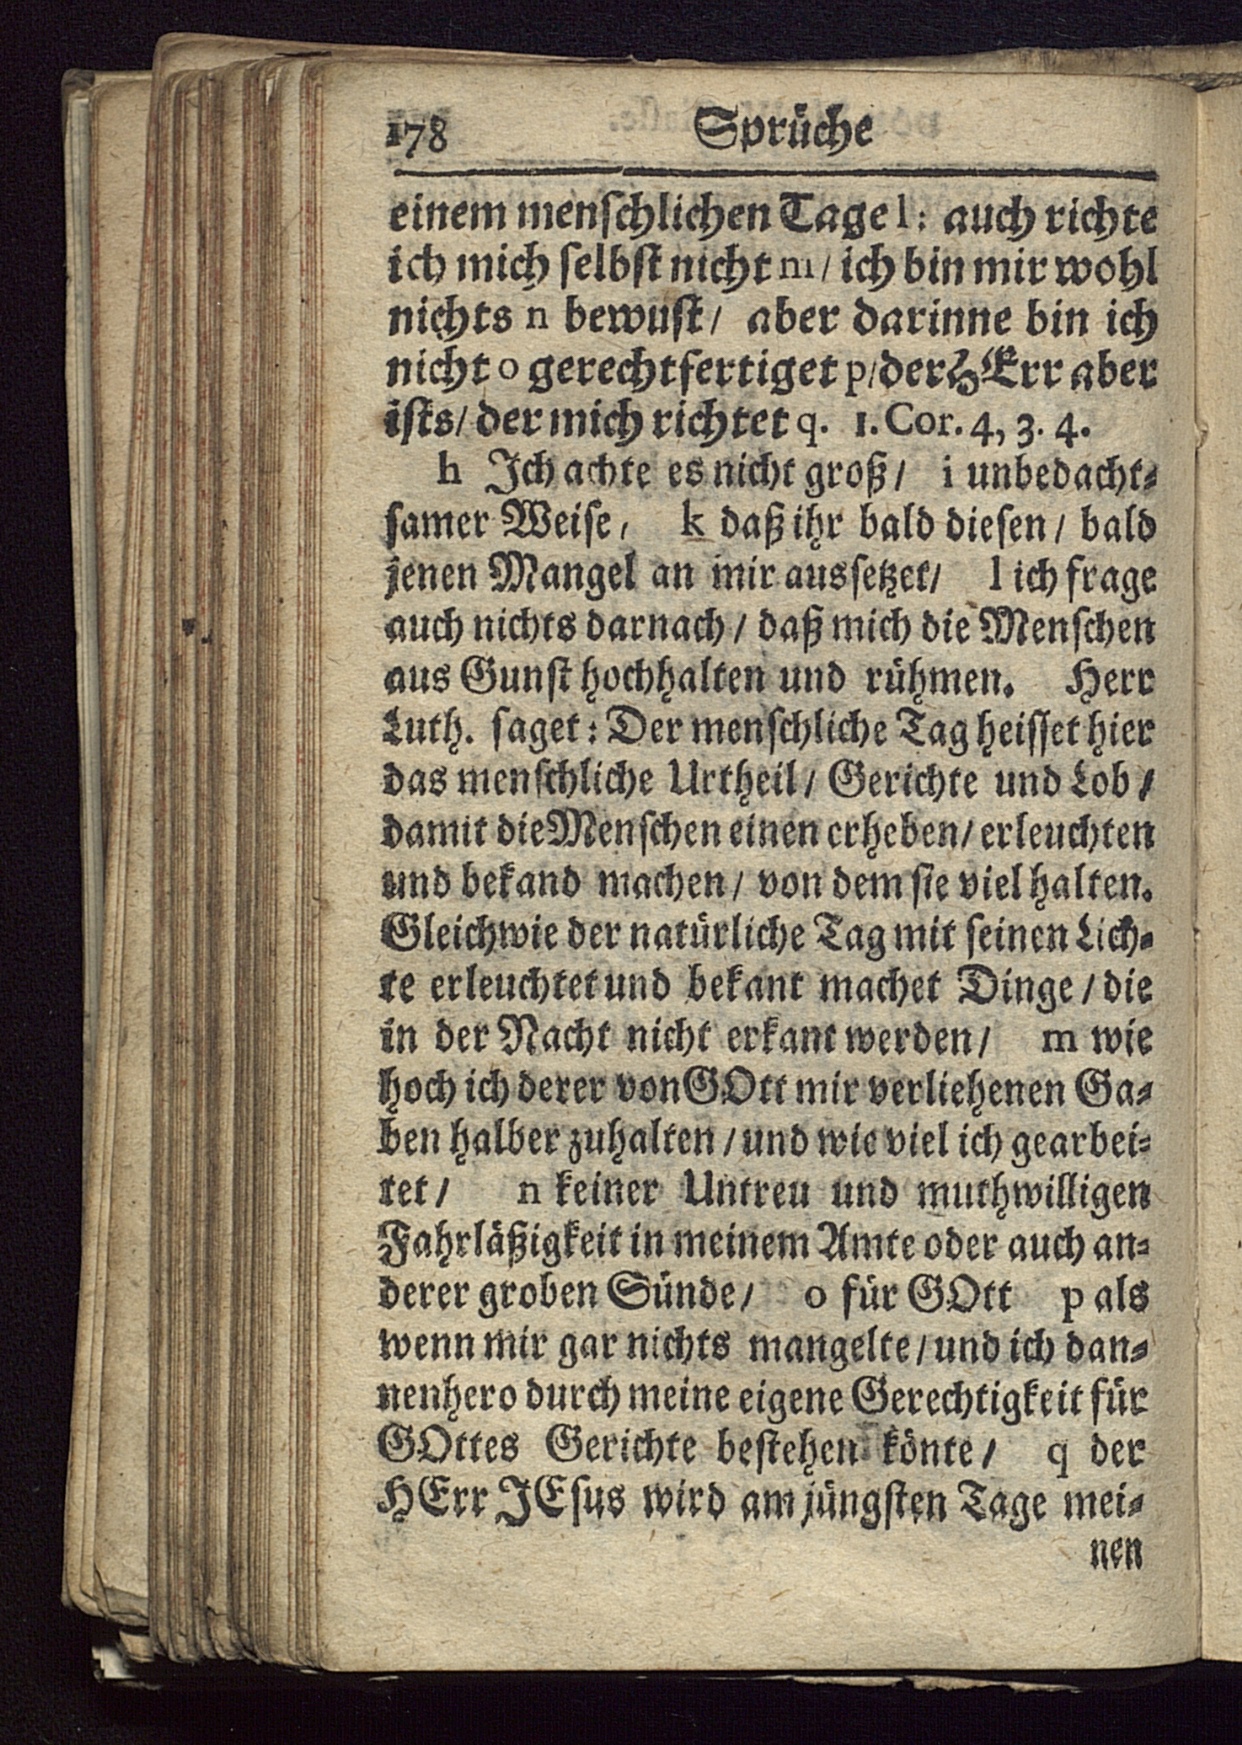 178 Sprüche
einem menschlichen Tage l: auch richte
ich mich selbst nicht m/ ich bin mir wohl
nichts n bewust/ aber darinne bin ich
nicht o gerechtfertiget p/ der HErr aber
ists/ der mich richtet q. 1. Cor. 4, 3. 4.
h Ich achte es nicht groß/ i unbedacht-
samer Weise/ k daß ihr bald diesen/ bald
jenen Mangel an mir aussetzet/ l ich frage
auch nichts darnach/ daß mich die Menschen
aus Gunst hochhalten und rühmen. Herr
Luth. saget: Der menschliche Tag heisset hier
das menschliche Urtheil/ Gerichte und Lob/
damit die Menschen einen erheben/ erleuchten
und bekand machen/ von dem sie viel halten.
Gleichwie der natürliche Tag mit seinen Lich-
te erleuchtet und bekant machet Dinge/ die
in der Nacht nicht erkant werden/ m wie
hoch ich derer von GOtt mir verliehenen Ga-
ben halber zuhalten/ und wie viel ich gearbei-
tet/ n keiner Untreu und muthwilligen
Fahrläßigkeit in meinem Amte oder auch an-
derer groben Sünde/ o für GOtt p als
wenn mir gar nichts mangelte/ und ich dan-
nenhero durch meine eigene Gerechtigkeit für
GOttes Gerichte bestehen könte/ q der
HErr JEsus wird am jüngsten Tage mei-
nen